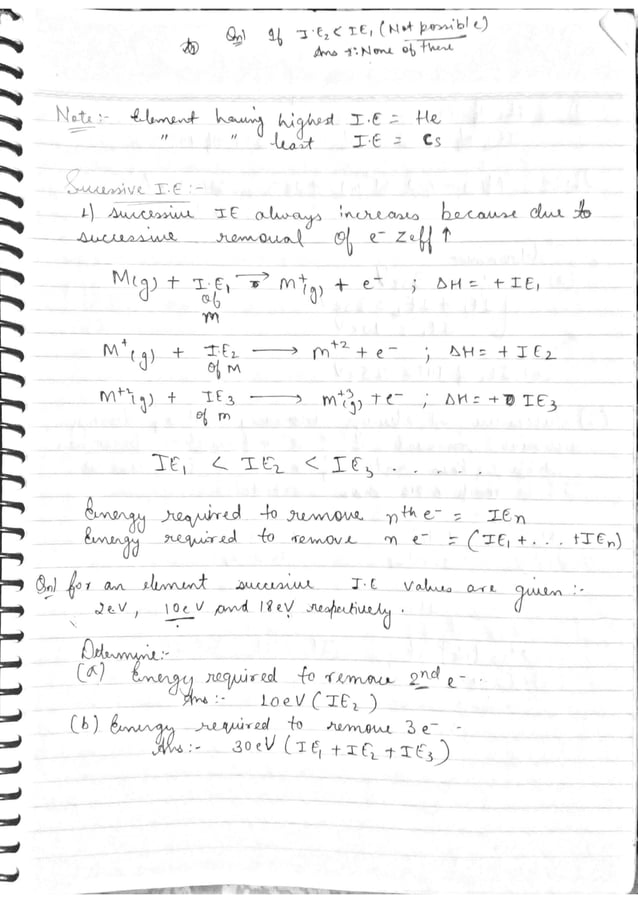 Qn) If I.E₂ < IE₁ (Not possible)
Ans :- None of these
Note :- Element having highest I.E = He
" " least I.E = Cs
Successive I.E :-
1) successive IE always increases because due to
successive removal of e⁻ Zeff ↑
M(g) + I.E₁ → m⁺(g) + e⁻ ; ΔH = + IE₁
of
m
M⁺(g) + I.E₂ → m⁺² + e⁻ ; ΔH = + IE₂
of M
m⁺²(g) + IE₃ → m⁺³(g) + e⁻ ; ΔH = + IE₃
of m
IE₁ < IE₂ < IE₃ . . . . .
Energy required to remove nth e⁻ = IEn
Energy required to remove n e⁻ = (IE₁ + . . . + IEn)
Qn) for an element succesive I.E values are given :-
2eV, 10eV and 18eV respectively.
Determine :-
(a) Energy required to remove 2nd e⁻ ..
Ans :- 10eV (IE₂)
(b) Energy required to remove 3 e⁻ -
Ans :- 30eV (IE₁ + IE₂ + IE₃)